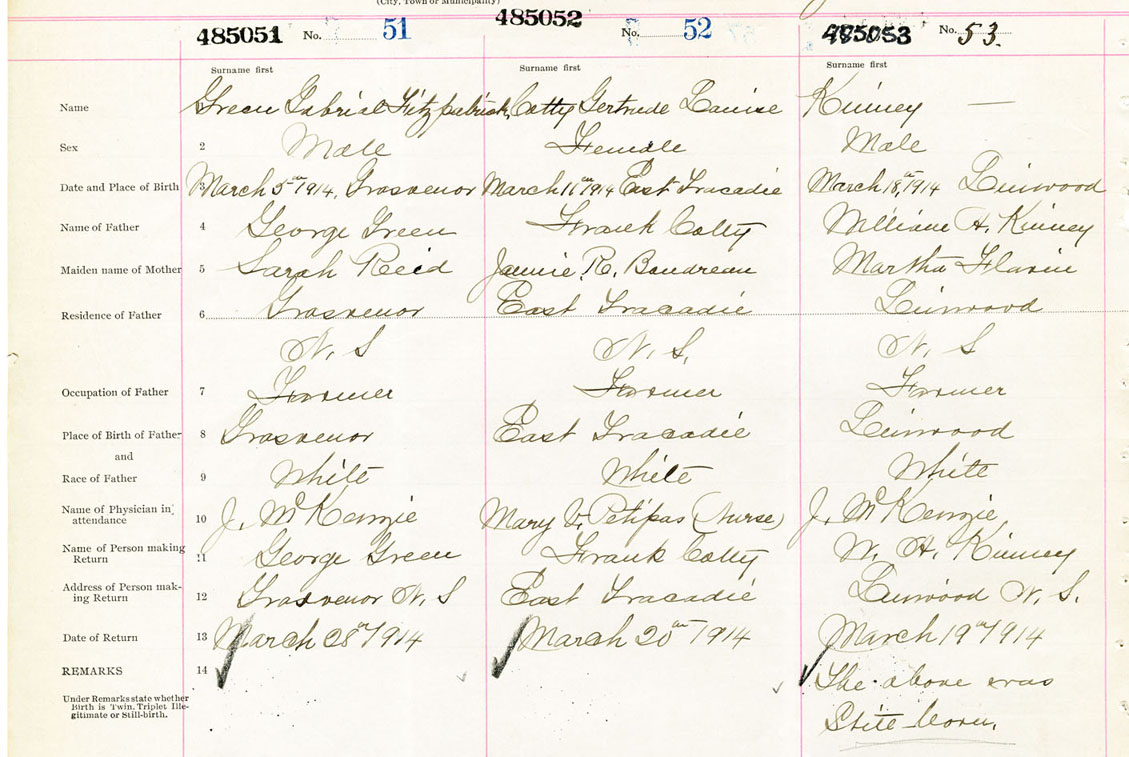 (City, Town or Municipality)
485051 No. 51 485052 No. 52 485053 No. 53.
Surname first Surname first Surname first
Name Green Gabriel Fitzpatrick, Cotty Gertrude Louise Kinney —
Sex 2 Male Female Male
Date and Place of Birth 3 March 5th 1914, Grosvenor March 11th 1914 East Tracadie March 18th, 1914 Linwood
Name of Father 4 George Green Frank Cotty William H. Kinney
Maiden name of Mother 5 Sarah Reid Jennie R. Boudreau Martha Flavin
Residence of Father 6 Grosvenor East Tracadie Linwood
N. S N. S. N. S
Occupation of Father 7 Farmer Farmer Farmer
Place of Birth of Father 8 Grosvenor East Tracadie Linwood
and
Race of Father 9 White White White
Name of Physician in attendance 10 J. McKenzie Mary V. Petipas (Nurse) J. McKenzie
Name of Person making Return 11 George Green Frank Cotty W. H. Kinney
Address of Person making Return 12 Grosvenor N. S East Tracadie Linwood N. S.
Date of Return 13 March 28th 1914 March 20th 1914 March 19th 1914
REMARKS 14 The above was
Under Remarks state whether
Birth is Twin, Triplet Ille-
gitimate or Still-birth.
Still-born.